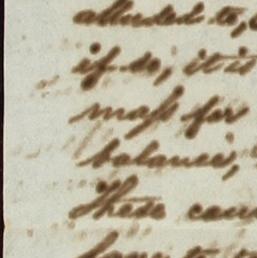 alluded to,
if so, it is
mass for
balance,
These